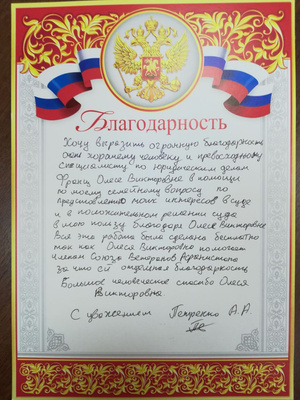 Благодарность
Хочу выразить огромную благодарность
очень хорошему человеку и превосходному
специалисту по юридическим делам
Олесе Викторовне в помощи
по моему семейному вопросу по
представлению моих интересов в суде
и в положительном решении суда
в мою пользу благодаря Олесе Викторовне
Вся эта работа была сделана бесплатно
так как Олеся Викторовна помогает
членам Союза Ветеранов
за что ей отдельная благодарность
Большое человеческое спасибо Олеся
Викторовна
С уважением Петренко А.А